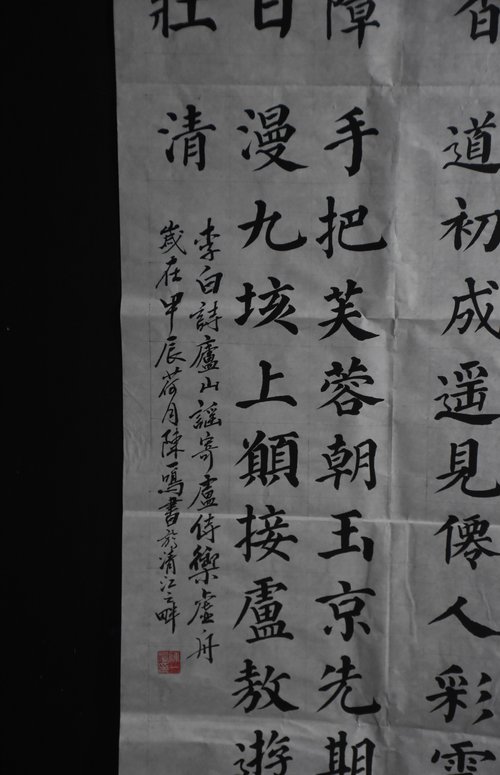 道初成遥見僊人彩雲
障手把芙蓉朝玉京先期
漫九垓上願接盧敖遊
壯清
李白詩廬山謠寄盧侍御虛舟
歲在甲辰荷月陳一鳴書於清江之畔